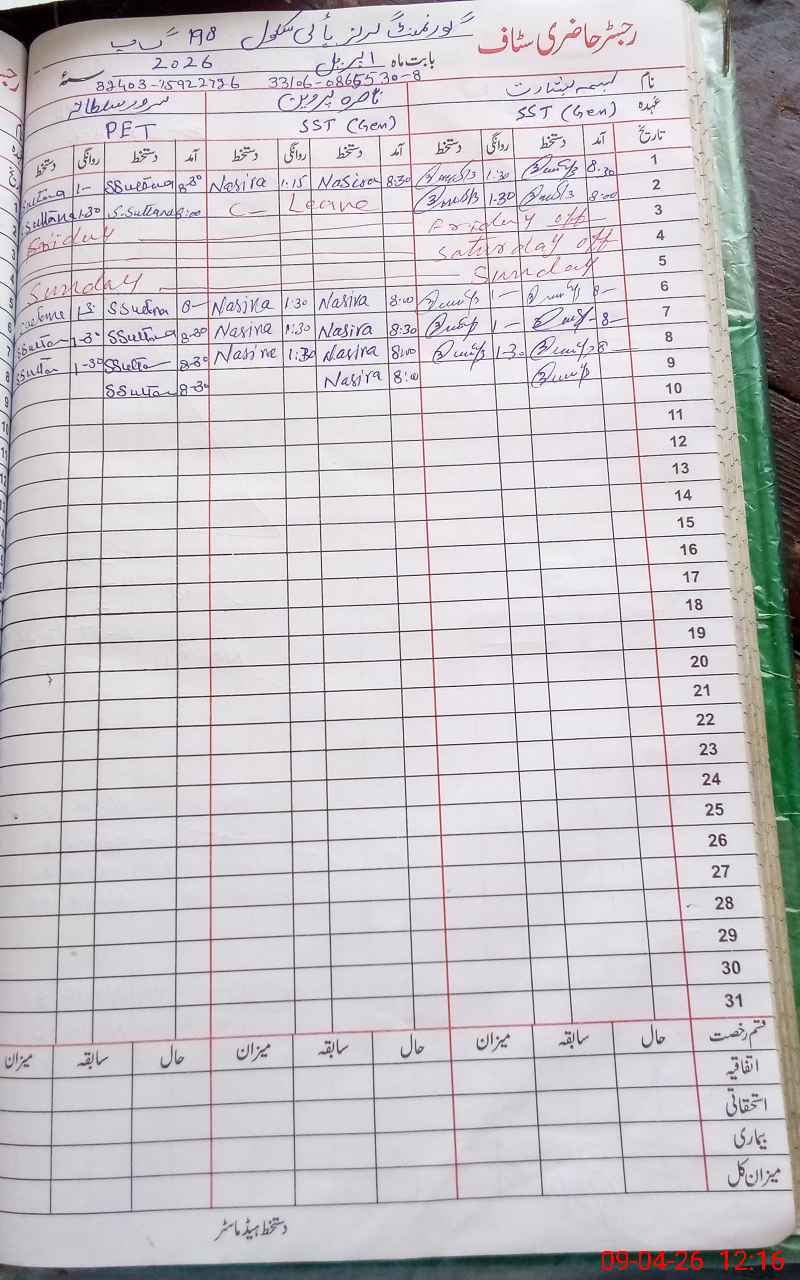 رجسٹر حاضری سٹاف
گورنمنٹ گرلز ہائی سکول 198 گ ب
بابت ماہ اپریل 2026 سنہ
33106-0865530-8
نام
ناصرہ پروین سرور سلطانہ
عہدہ SST (Gen) SST (Gen) PET
تاریخ آمد دستخط روانگی دستخط آمد دستخط روانگی دستخط آمد دستخط روانگی دستخط
1 8.30 1.30 8:30 Nasira 1:15 Nasira 8-30 SSultana 1-
2 8:00 1.30 C- Leave 8:00 S.Sultana 1-30 Sultana
3 Friday off Friday
4 Saturday off
5 Sunday Sunday
6 8- 1- 8:00 Nasira 1:30 Nasira 8- SSultana
7 8- 1- 8:30 Nasira 1:30 Nasira 8-30 SSultana 1-30 SSultan
8 8- 1-30 8:00 Nasira 1:30 Nasira 8-30 SSultan 1-30 SSultan
9 8:00 Nasira 8-30 SSultan
10
11
12
13
14
15
16
17
18
19
20
21
22
23
24
25
26
27
28
29
30
31
قسم رخصت حال سابقہ میزان حال سابقہ میزان حال سابقہ میزان
اتفاقیہ
استحقاقی
بیماری
میزان کل
دستخط ہیڈ ماسٹر
09-04-26 12:16